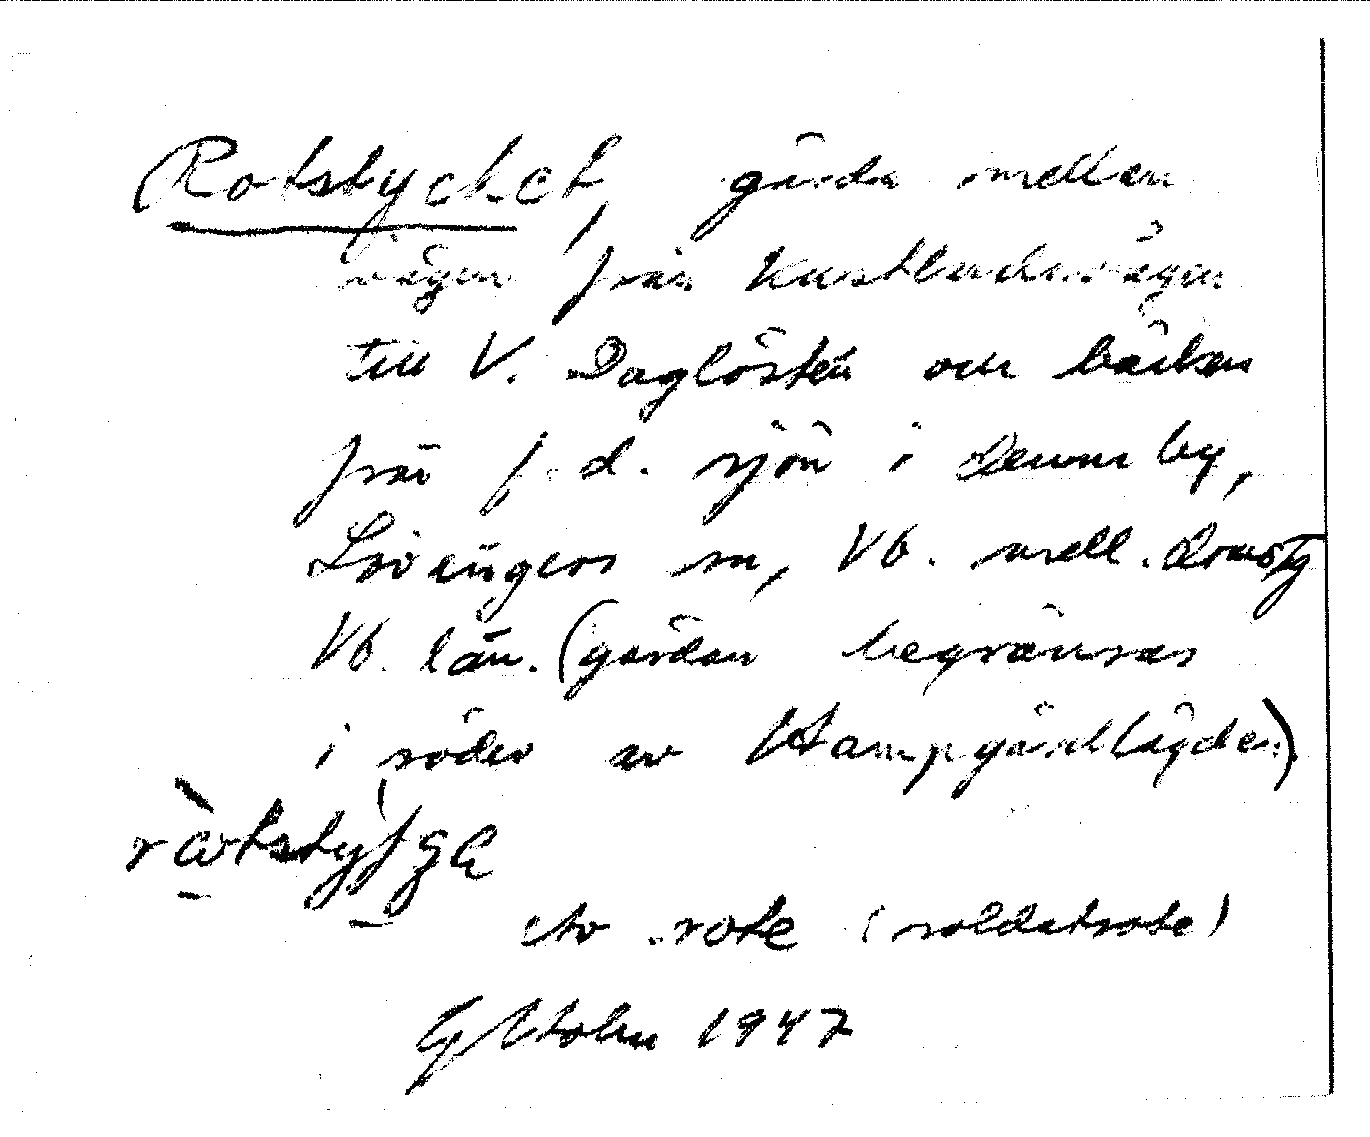 Rotstycket, gärda mellan
vägen från Kustlandsvägen
till V. Daglösten och bäcken
från f.d. sjön i Deunn by,
Lövångers sn, Vb. mell. domsg
Vb. län. (gärdan begränsas
i söder av Hampgärdlägden)
Av rote (soldatrote)
G Holm 1947